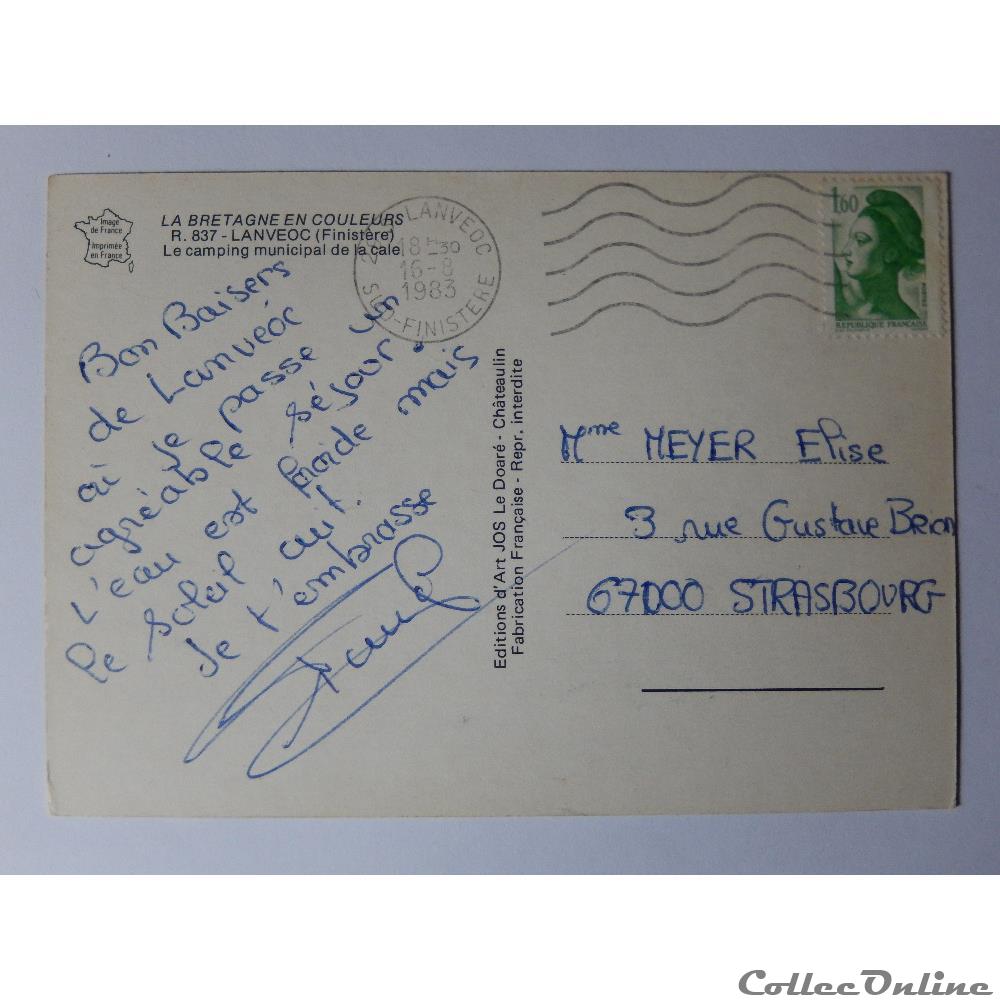 Image
de France
Imprimée
en France
LA BRETAGNE EN COULEURS
R. 837 - LANVEOC (Finistère)
Le camping municipal de la cale
LANVEOC
18 H 30
16-8
1983
SUD-FINISTERE
1,60
REPUBLIQUE FRANÇAISE
Bon Baisers
de Lanvéoc
où je passe un
agréable séjour.
L'eau est froide mais
le soleil cuit.
Je t'embrasse
Editions d'Art JOS Le Doaré - Châteaulin
Fabrication Française - Repr. interdite
Mme MEYER Elise
3 rue Gustave Brion
67000 STRASBOURG
CollecOnline